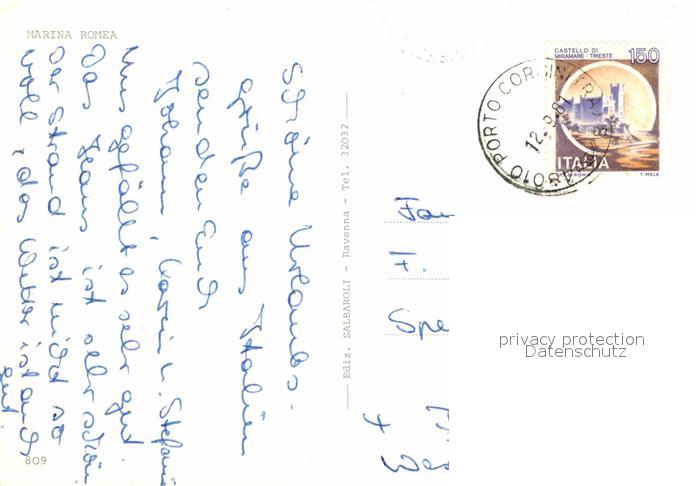 MARINA ROMEA
Schöne Urlaubs-
grüße aus Italien
senden Euch
Johann, Karin u. Stefanie
Uns gefällt es sehr gut.
Das Haus ist sehr schön
Der Strand ist nicht so
voll, das Wetter ist auch
gut.
809
Ediz. SALBAROLI - Ravenna - Tel. 32032
CASTELLO DI
MIRAMARE - TRIESTE
150
ITALIA
T. MELE
48010 PORTO CORSINI (RA)
12.9.81
Fam
F.
Spe
privacy protection
Datenschutz